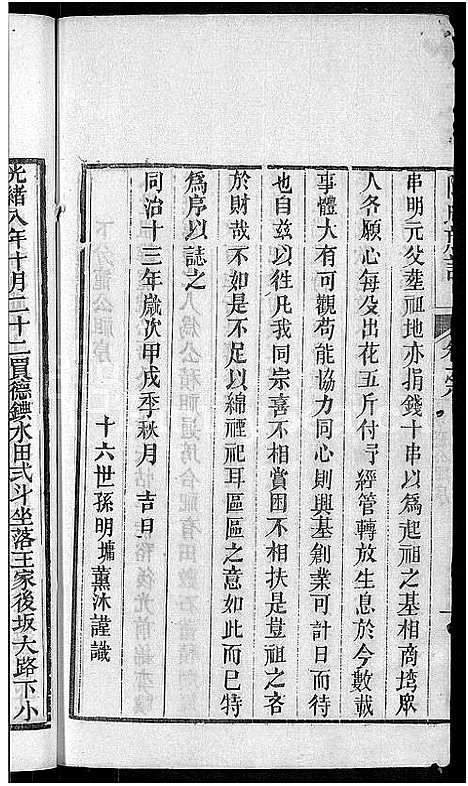 串明元父塟祖地亦捐錢十串以為起祖之基相商塆眾
人各願心每殳出花五斤付弓經管轉放生息於今數載
事體大有可觀苟能協力同心則興基創業可計日而待
也自玆以徃凡我同宗喜不相賞困不相扶是豈祖之吝
於財哉亦恐是不足以綿禋祀耳區區之意如此而已特
為序以誌之
同治十三年歲次甲戌季秋月 吉旦
十六世孫明墉薰沐謹識
光緒八年十月二十二買德鏢水田弍斗坐落王家後坂大路下小